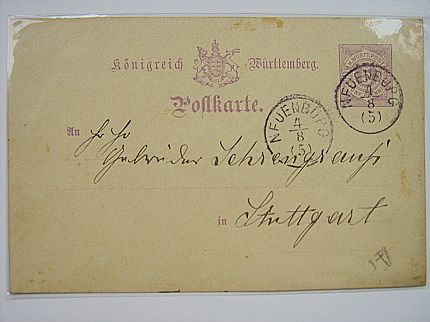 Königreich Württemberg.
Postkarte.
NEUENBÜRG
4
8
(5)
NEUENBÜRG
4
8
(5)
An
Gebrüder
in Stuttgart